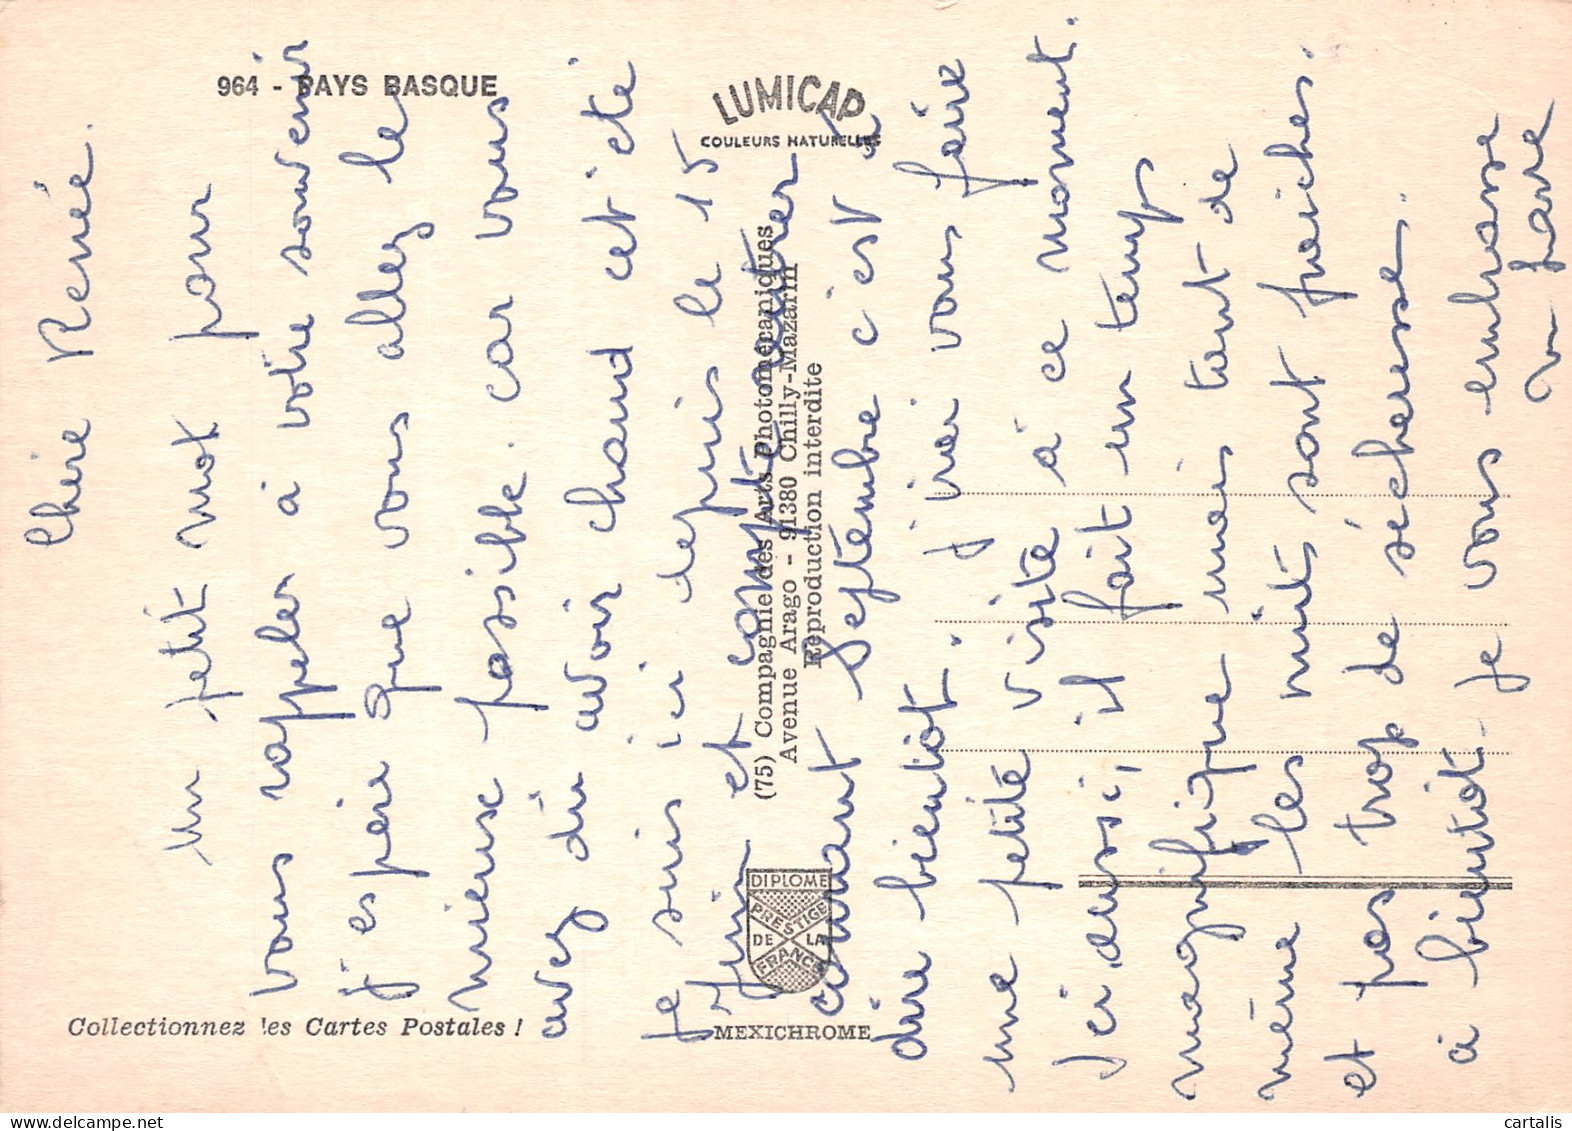 964 - PAYS BASQUE
LUMICAP
COULEURS NATURELLES
(75) Compagnie des Arts Photomécaniques
Avenue Arago - 91380 Chilly-Mazarin
Reproduction interdite
DIPLOME
PRESTIGE
DE LA
FRANCE
MEXICHROME
Collectionnez les Cartes Postales !
Chère Renée.
Un petit mot pour
vous rappeler à votre souvenir
j'espère que vous allez le
mieux possible. car vous
avez dû avoir chaud cet été
Je suis ici depuis le 15
Juin et compte rentrer
courant Septembre c'est à
dire bientôt. j'irai vous faire
une petite visite à ce moment.
Ici aussi, il fait un temps
magnifique mais tant de
même les nuits sont fraiches.
et pas trop de sécheresse.
à bientôt. Je vous embrasse
cartalis delcampe.net